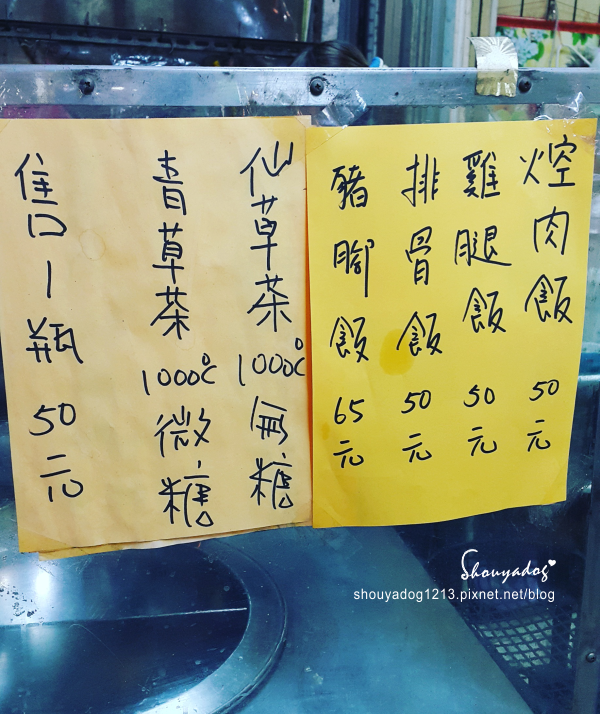 焢肉飯 50元
雞腿飯 50元
排骨飯 50元
豬腳飯 65元
仙草茶 1000℃ 無糖
青草茶 1000℃ 微糖
售1瓶 50元
Shouyadog
shouyadog1213.pixnet.net/blog